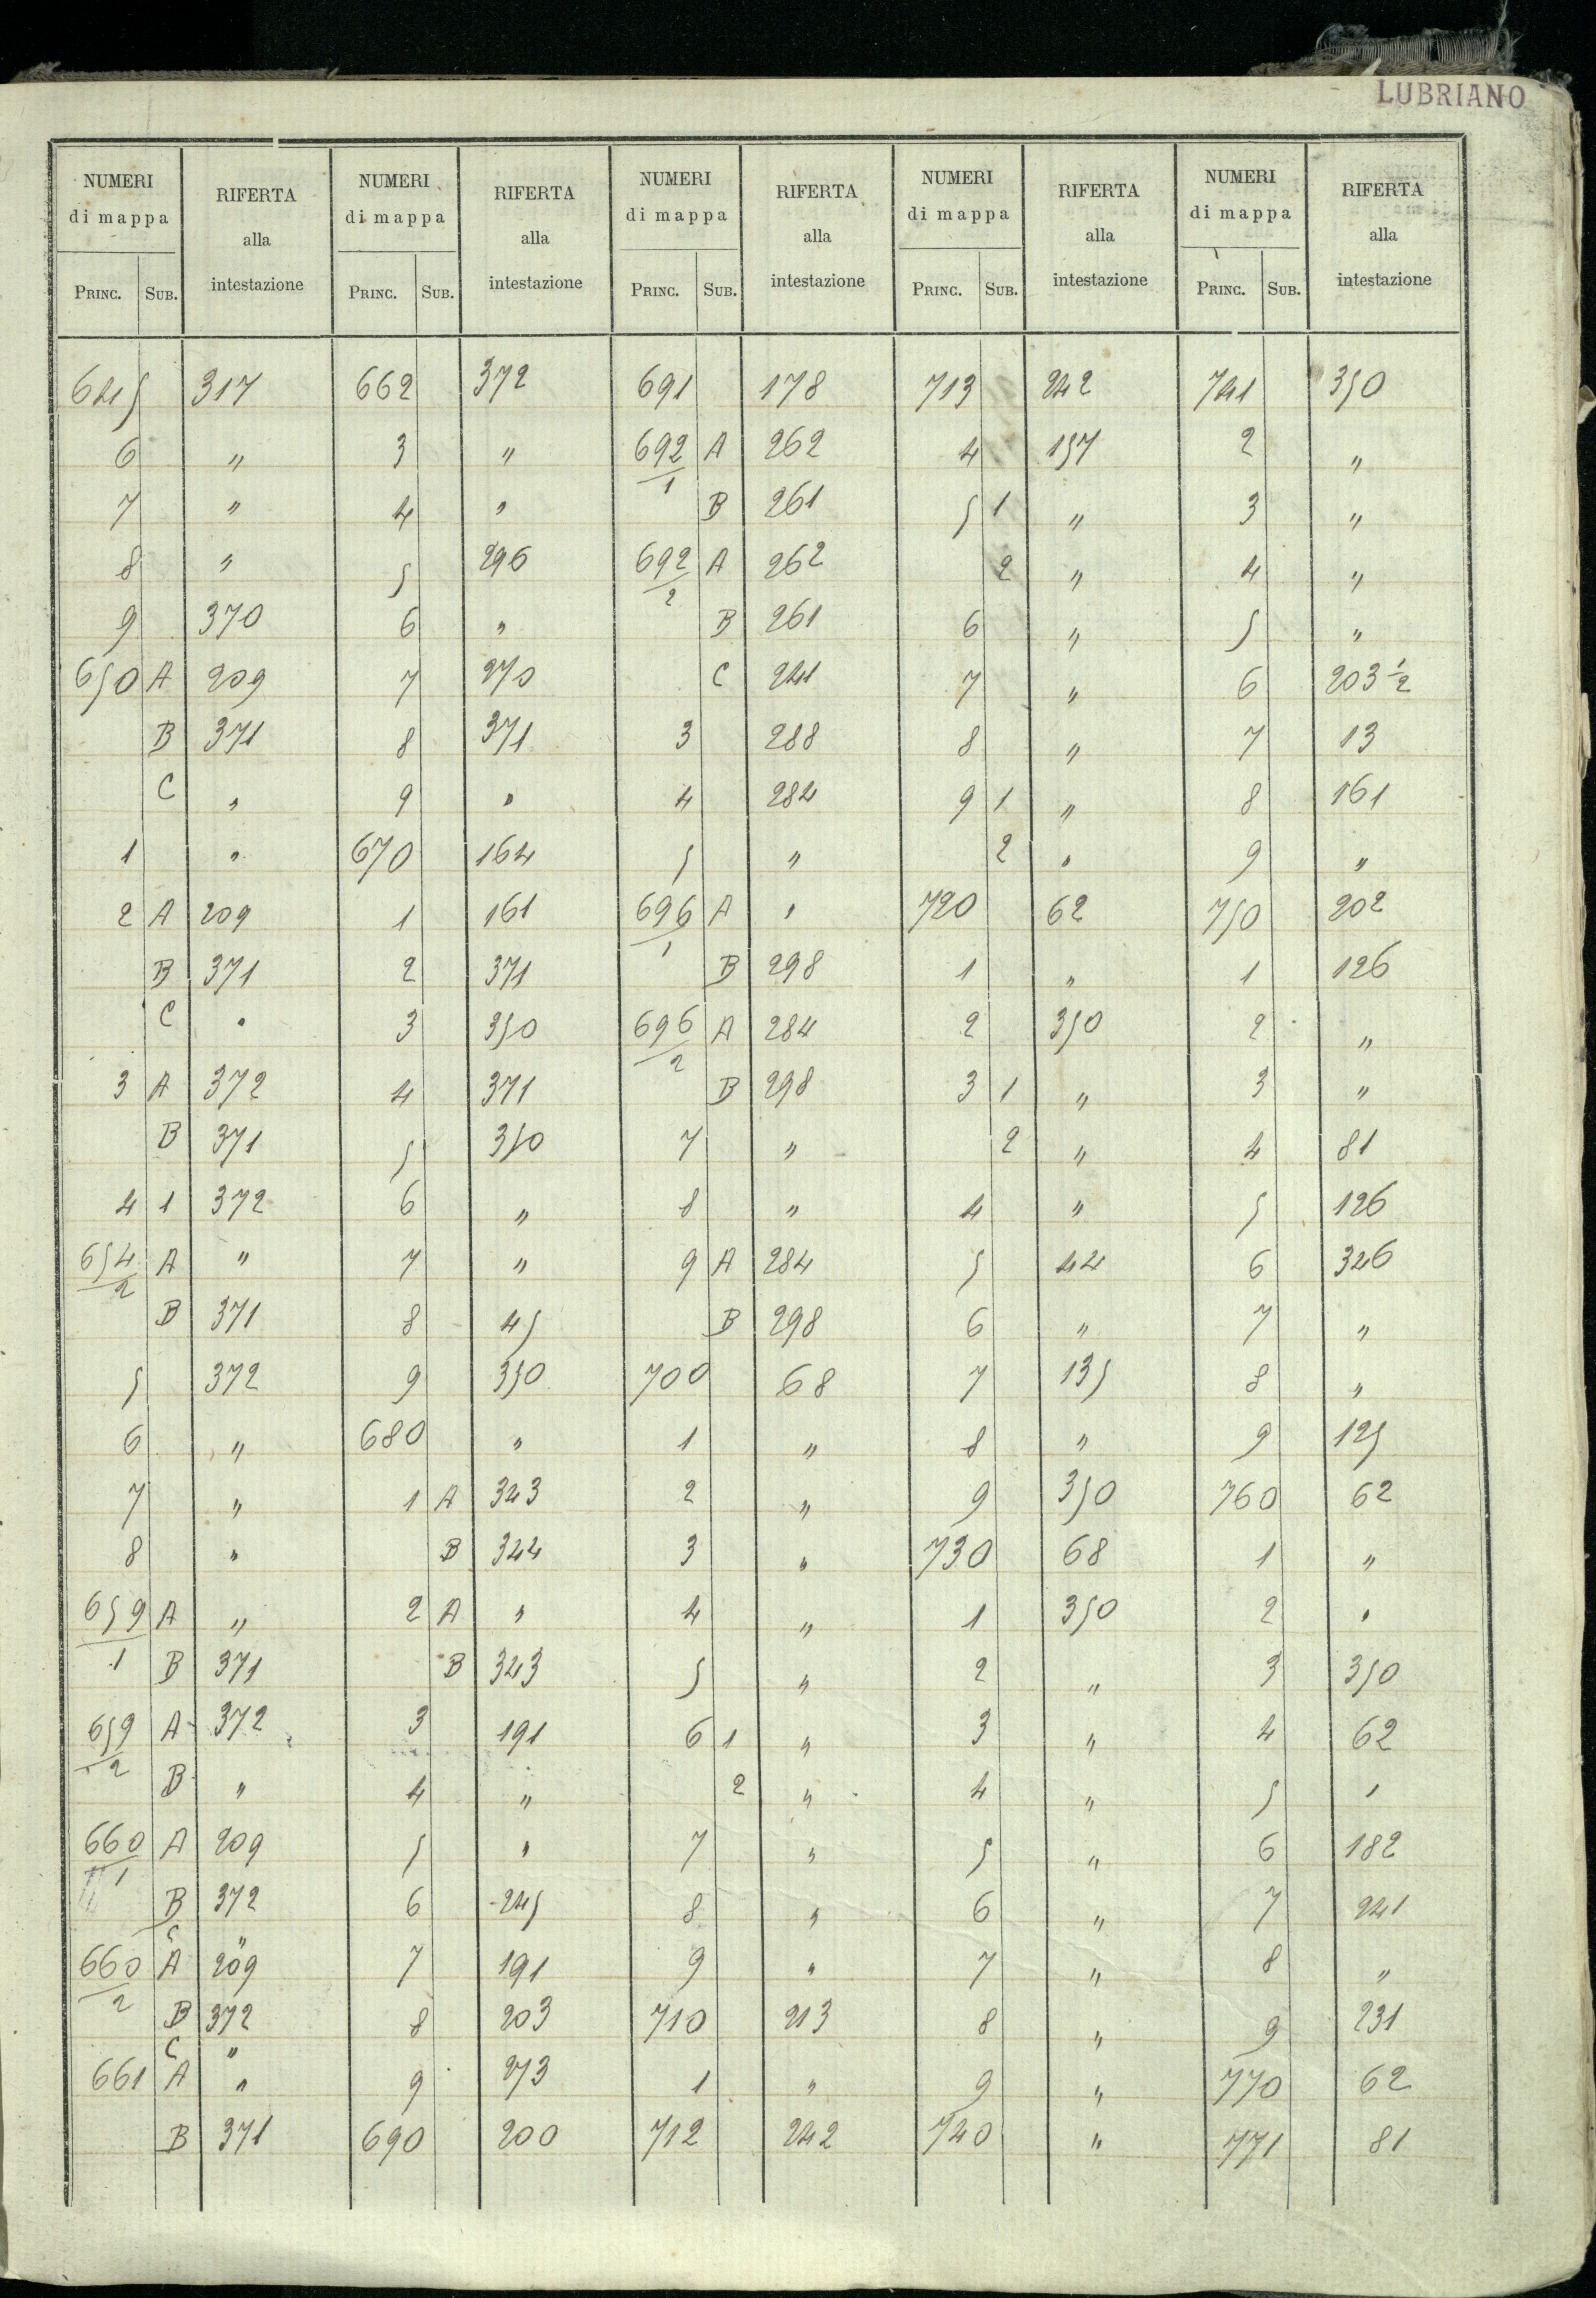 LUBRIANO
NUMERI di mappa RIFERTA alla intestazione NUMERI di mappa RIFERTA alla intestazione NUMERI di mappa RIFERTA alla intestazione NUMERI di mappa RIFERTA alla intestazione NUMERI di mappa RIFERTA alla intestazione
PRINC. SUB. PRINC. SUB. PRINC. SUB. PRINC. SUB. PRINC. SUB.
645 317 662 372 691 178 713 242 741 350
6 " 3 " 692/1 A 262 4 157 2 "
7 " 4 " B 261 5 1 " 3 "
8 " 5 296 692/2 A 262 2 " 4 "
9 370 6 " B 261 6 " 5 "
650 A 209 7 270 C 241 7 " 6 203 1/2
B 371 8 371 3 288 8 " 7 13
C " 9 " 4 284 9 1 " 8 161
1 " 670 164 5 " 2 " 9 "
2 A 209 1 161 696/1 A " 720 62 750 202
B 371 2 371 B 298 1 " 1 126
C " 3 350 696/2 A 284 2 350 2 "
3 A 372 4 371 B 298 3 1 " 3 "
B 371 5 350 7 " 2 " 4 81
4 1 372 6 " 8 " 4 " 5 126
654/2 A " 7 " 9 A 284 5 44 6 326
B 371 8 45 B 298 6 " 7 "
5 372 9 350 700 68 7 135 8 "
6 " 680 " 1 " 8 " 9 125
7 " 1 A 323 2 " 9 350 760 62
8 " B 324 3 " 730 68 1 "
659/1 A " 2 A " 4 " 1 350 2 "
B 371 B 323 5 " 2 " 3 350
659/2 A 372 3 191 6 1 " 3 " 4 62
B " 4 " 2 " 4 " 5 "
660/1 A 209 5 " 7 " 5 " 6 182
B 372 6 245 8 " 6 " 7 241
C "
660/2 A 209 7 191 9 " 7 " 8 "
B 372 8 203 710 213 8 " 9 231
C "
661 A " 9 273 1 " 9 " 770 62
B 371 690 200 712 242 740 " 771 81